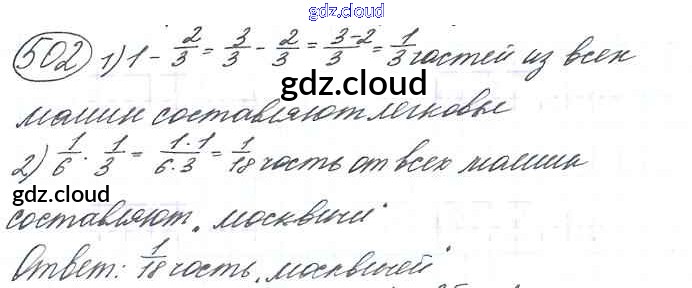 gdz.cloud
502 1) 1 - 2/3 = 3/3 - 2/3 = 3-2/3 = 1/3 частей из всех
gdz.cloud
машин составляют легковые
2) 1/6 · 1/3 = 1·1/6·3 = 1/18 часть от всех машин
gdz.cloud gdz.cloud
составляют „москвичи"
Ответ: 1/18 часть „москвичей"
gdz.cloud